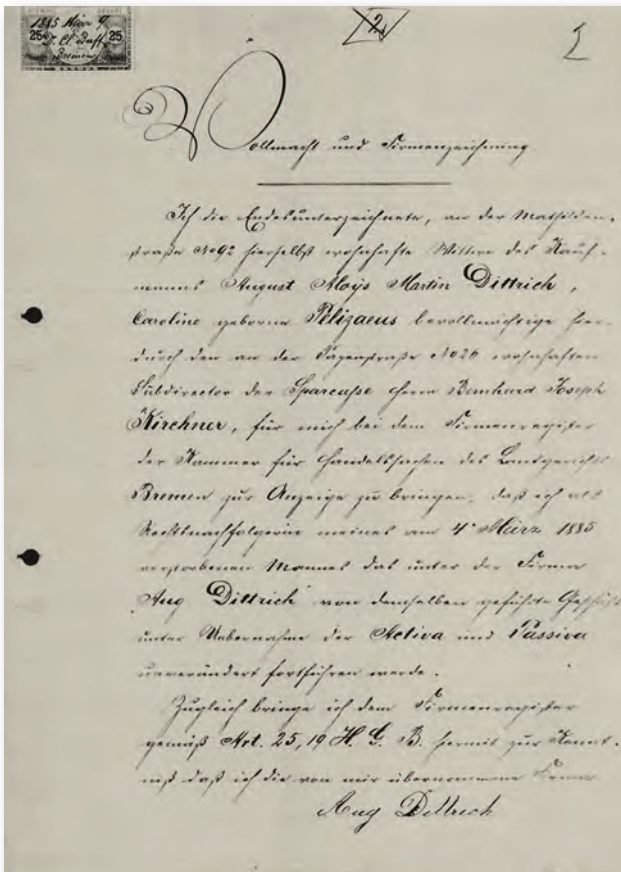 STEMPEL ABGABE
1885 März 9
25 25
Bremen
2.
Vollmacht und Firmenzeichnung.
Ich die Endesunterzeichnete, an der Mathilden-
straße No 92 hierselbst wohnhafte Wittwe des Kauf-
manns August Aloys Martin Dittrich,
Caroline geborne Pelizaeus bevollmächtige hier-
durch den an der Jägerstraße No 26 wohnhaften
Subdirector der Sparcasse Herrn Bernhard Joseph
Kirchner, für mich bei dem Firmenregister
der Kammer für Handelssachen des Landgerichts
Bremen zur Anzeige zu bringen, daß ich als
Rechtsnachfolgerin meines am 4t März 1885
verstorbenen Mannes das unter der Firma
Aug Dittrich von demselben geführte Geschäft
unter Uebernahme der Activa und Passiva
unverändert fortführen werde.
Zugleich bringe ich dem Firmenregister
gemäß Art. 25, 19 H. G. B. hiermit zur Kennt-
niß daß ich die von mir übernommene Firma
Aug Dittrich